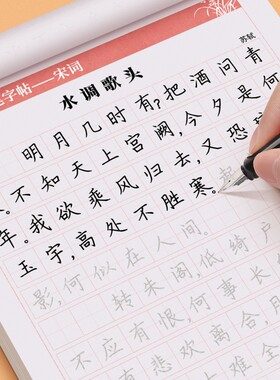 字帖——宋词
水调歌头
苏轼
明月几时有?把酒问青
。不知天上宫阙,今夕是何
年。我欲乘风归去,又恐
玉宇,高处不胜寒。起
影,何似在人间。
转朱阁,低绮户
不应有恨,何事长
有悲欢离合,月
难全